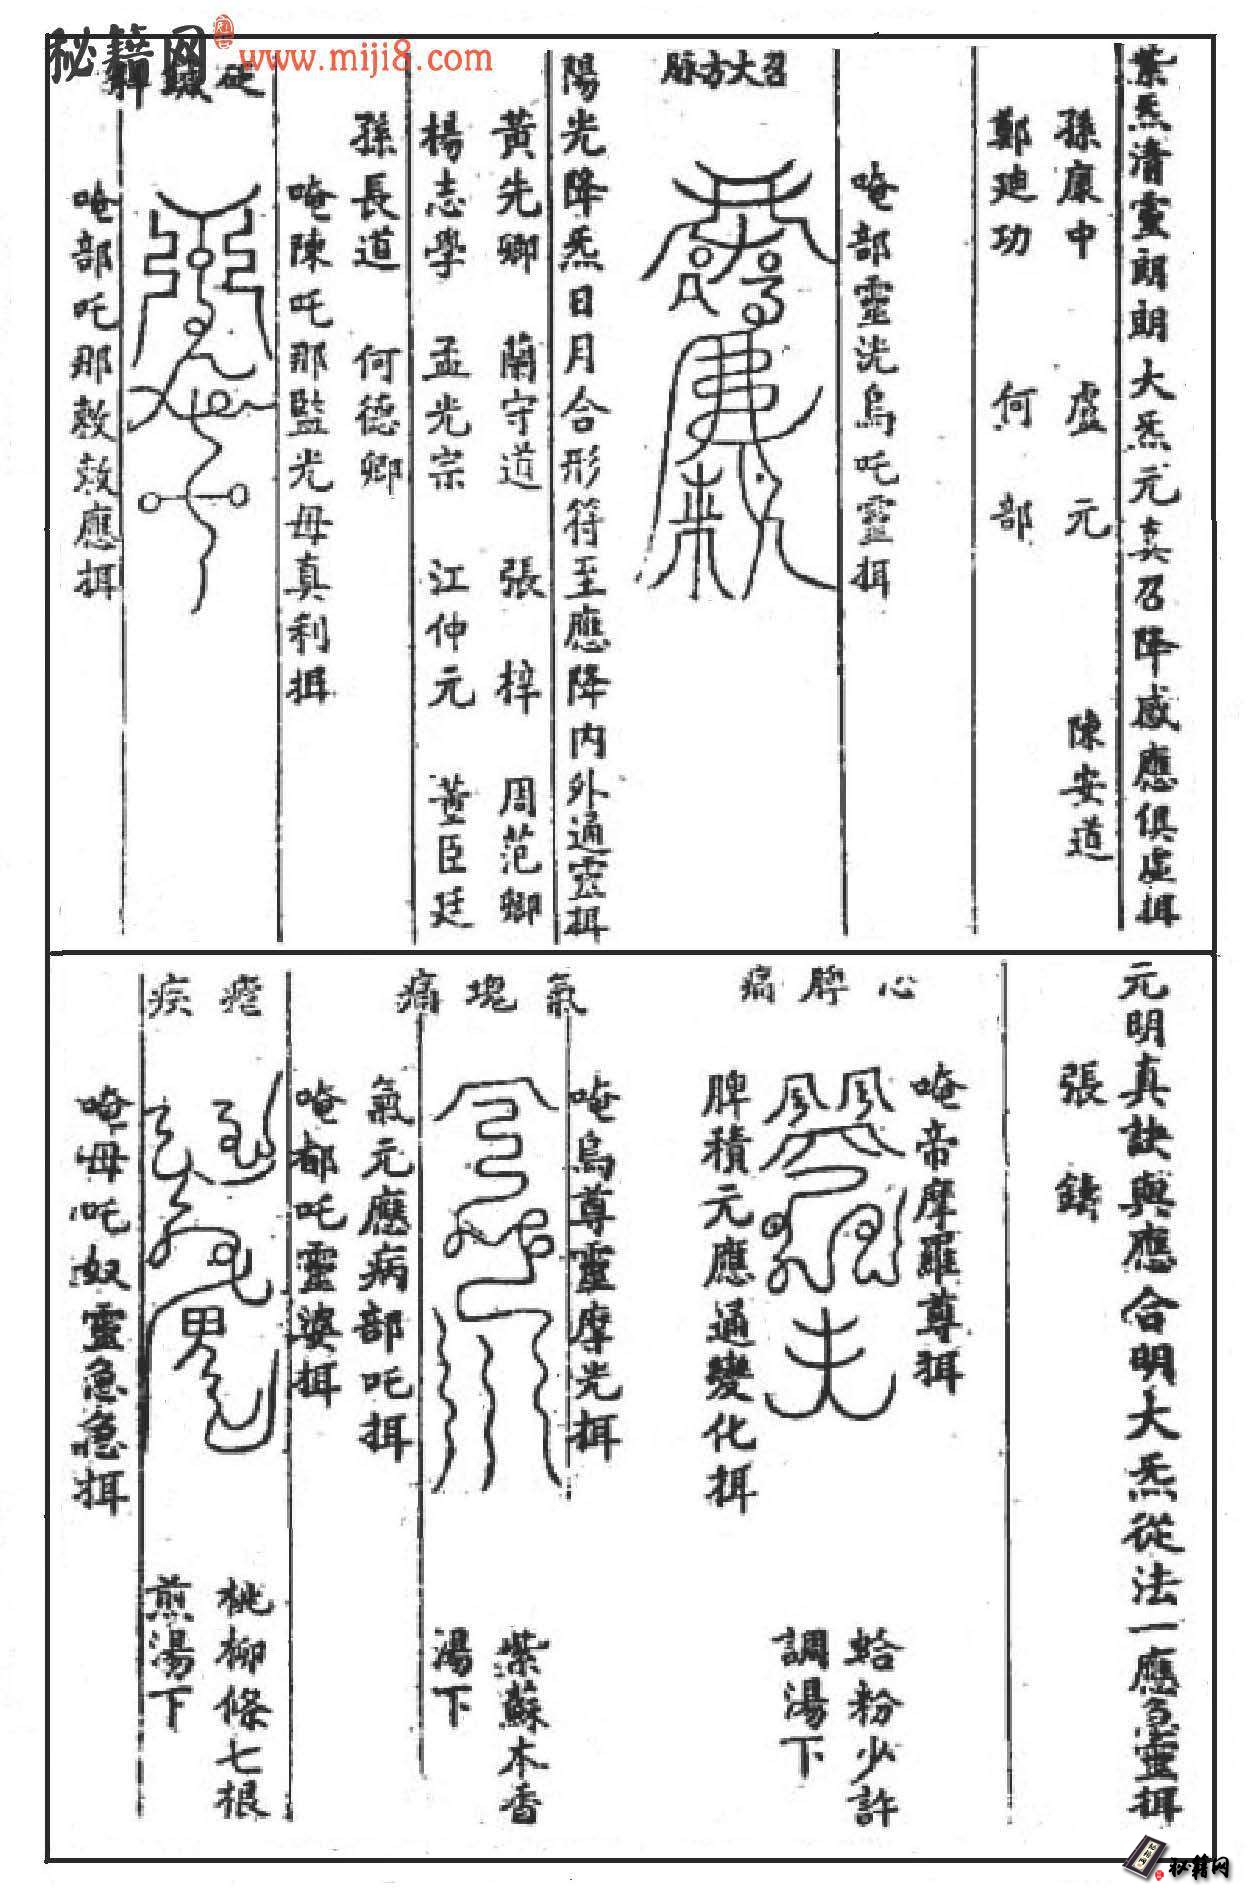 秘籍网
www.miji8.com
紫炁清靈朗朗大炁元真召降感應俱虛揖
孫康中 盧元 陳安道
鄭廸功 何部
唵部靈洸烏吒靈揖
召大方脉
陽光降炁日月合形符至應降內外通靈揖
黃先卿 蘭守道 張梓 周范卿
楊志學 孟光宗 江仲元 董臣廷
孫長道 何德卿
唵陳吒那監光母真利揖
唵部吒那敕敕應揖
元明真訣與應合明大炁從法一應急靈揖
張鑄
唵帝摩羅尊揖
心脾痛
脾積元應通變化揖
蛤粉少許
調湯下
唵烏尊靈摩光揖
氣塊痛
氣元應病部吒揖
紫蘇木香
湯下
唵都吒靈婆揖
瘧疾
桃柳條七根
煎湯下
唵母吒奴靈急急揖
秘籍网